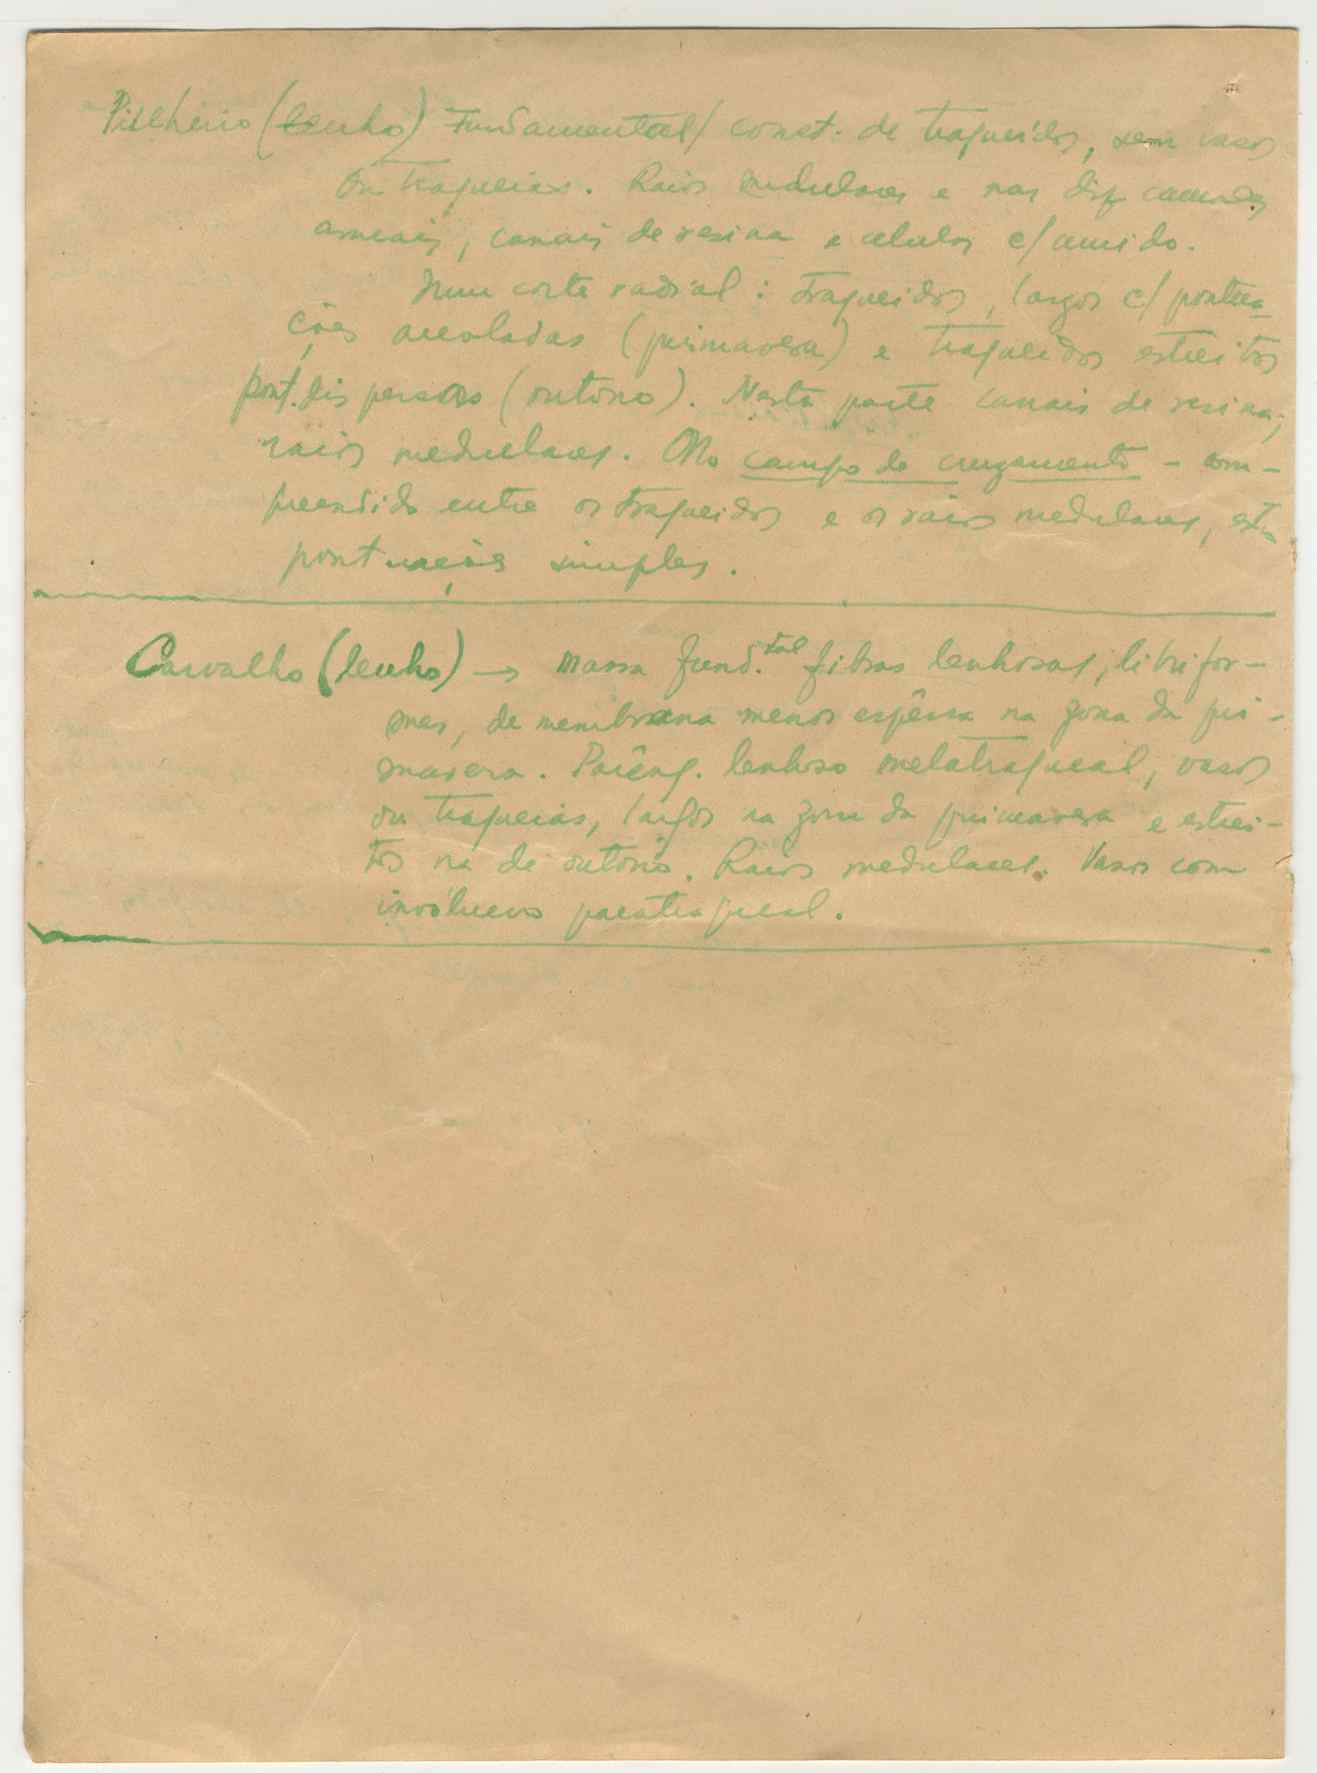 Pinheiro (lenho) Fundamental/ const. de traqueidos, sem vasos
ou traqueias. Raios medulares e nas dif. camadas
anuais, canais de resina e celulas c/ amido.
Num corte radial: traqueidos, largos c/ pontua-
ções areoladas (primavera) e traqueidos estreitos
pont. dispersas (outono). Nesta parte canais de resina;
raios medulares. No campo de cruzamento - com-
preendido entre os traqueidos e os raios medulares, estão
pontuações simples.
Carvalho (lenho) → massa fund.tal fibras lenhosas, librifor-
mes, de membrana menos espêssa na zona da pri-
mavera. Parênq. lenhoso metatraqueal, vasos
ou traqueias, largos na zona da primavera e estrei-
tos na de outono. Raios medulares. Vasos com
invólucro paratraqueal.